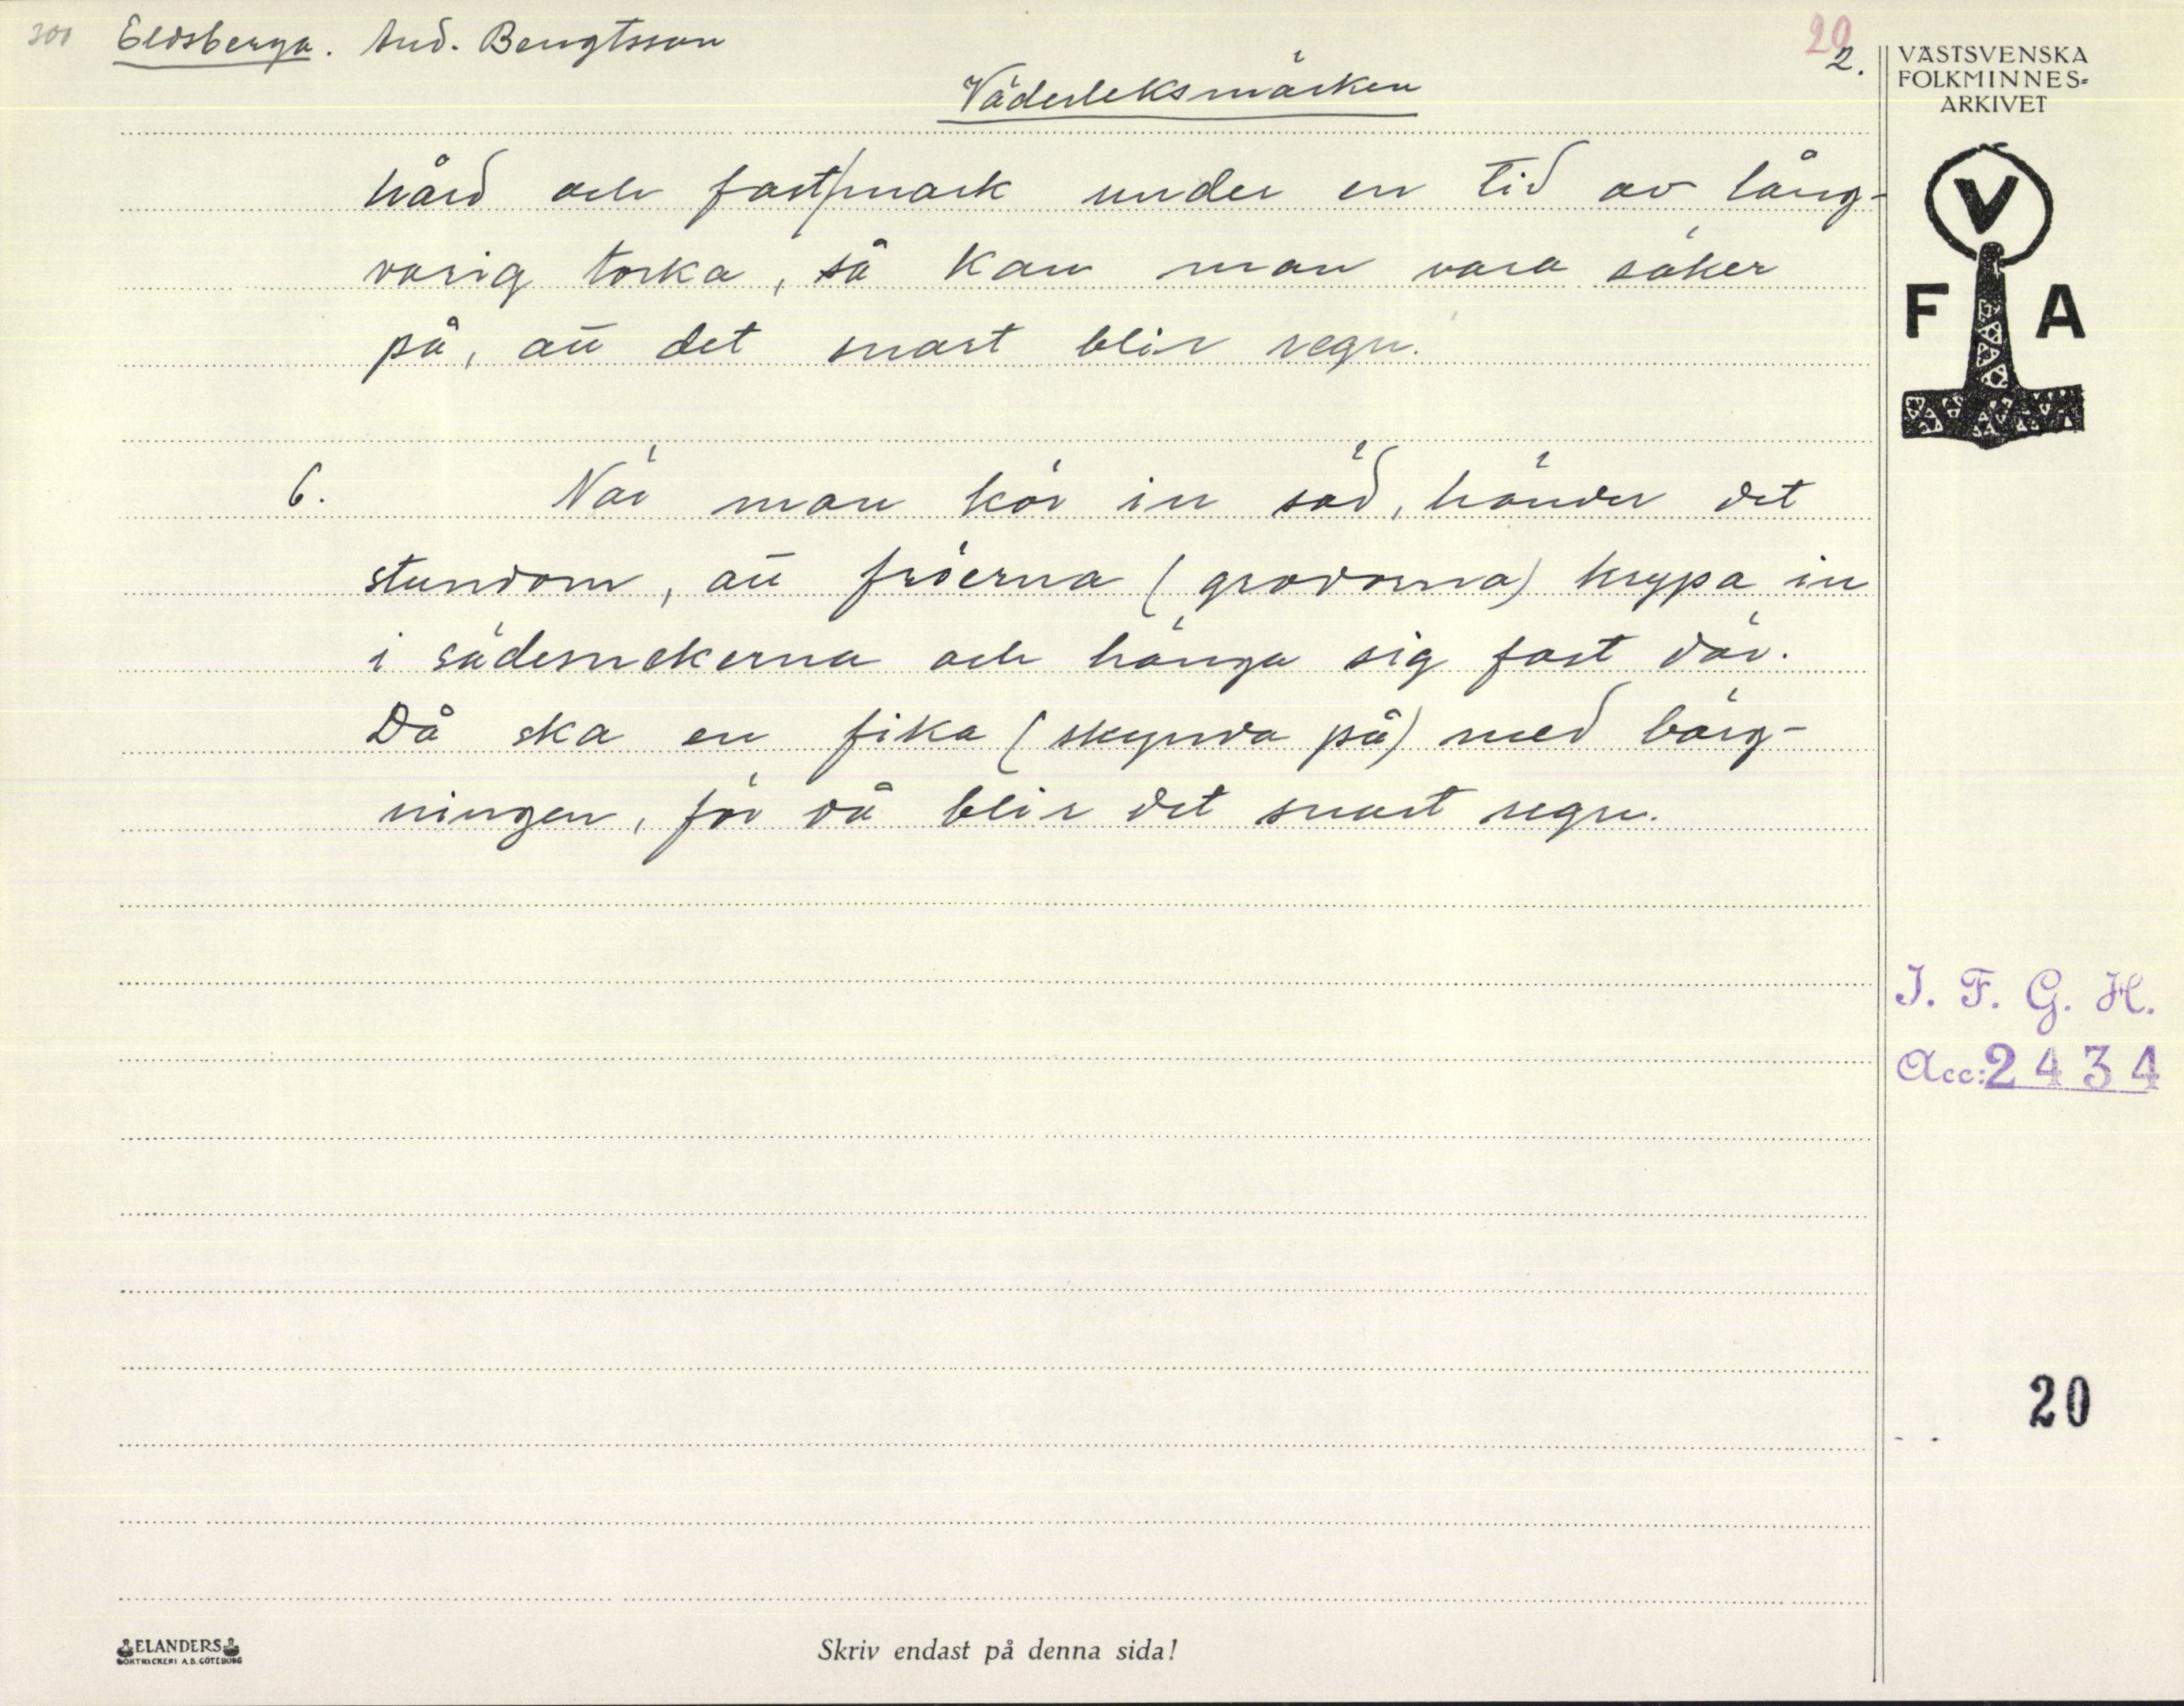 300 Eldsberga. And. Bengtsson
20
2.
Väderleksmärken
hård och fast/mark under en tid av lång-
varig torka, så kan man vara säker
på, att det snart blir regn.
6. När man kör in säd, händer det
stundom, att fröerna (grodorna) krypa in
i sädesnekerna och hänga sig fast där.
Då ska en fika (skynda på) med bärg-
ningen, för då blir det snart regn.
VÄSTSVENSKA
FOLKMINNES-
ARKIVET
V
F A
I. F. G. H.
Acc: 2434
20
ELANDERS
BOKTRYCKERI A.B. GÖTEBORG
Skriv endast på denna sida!